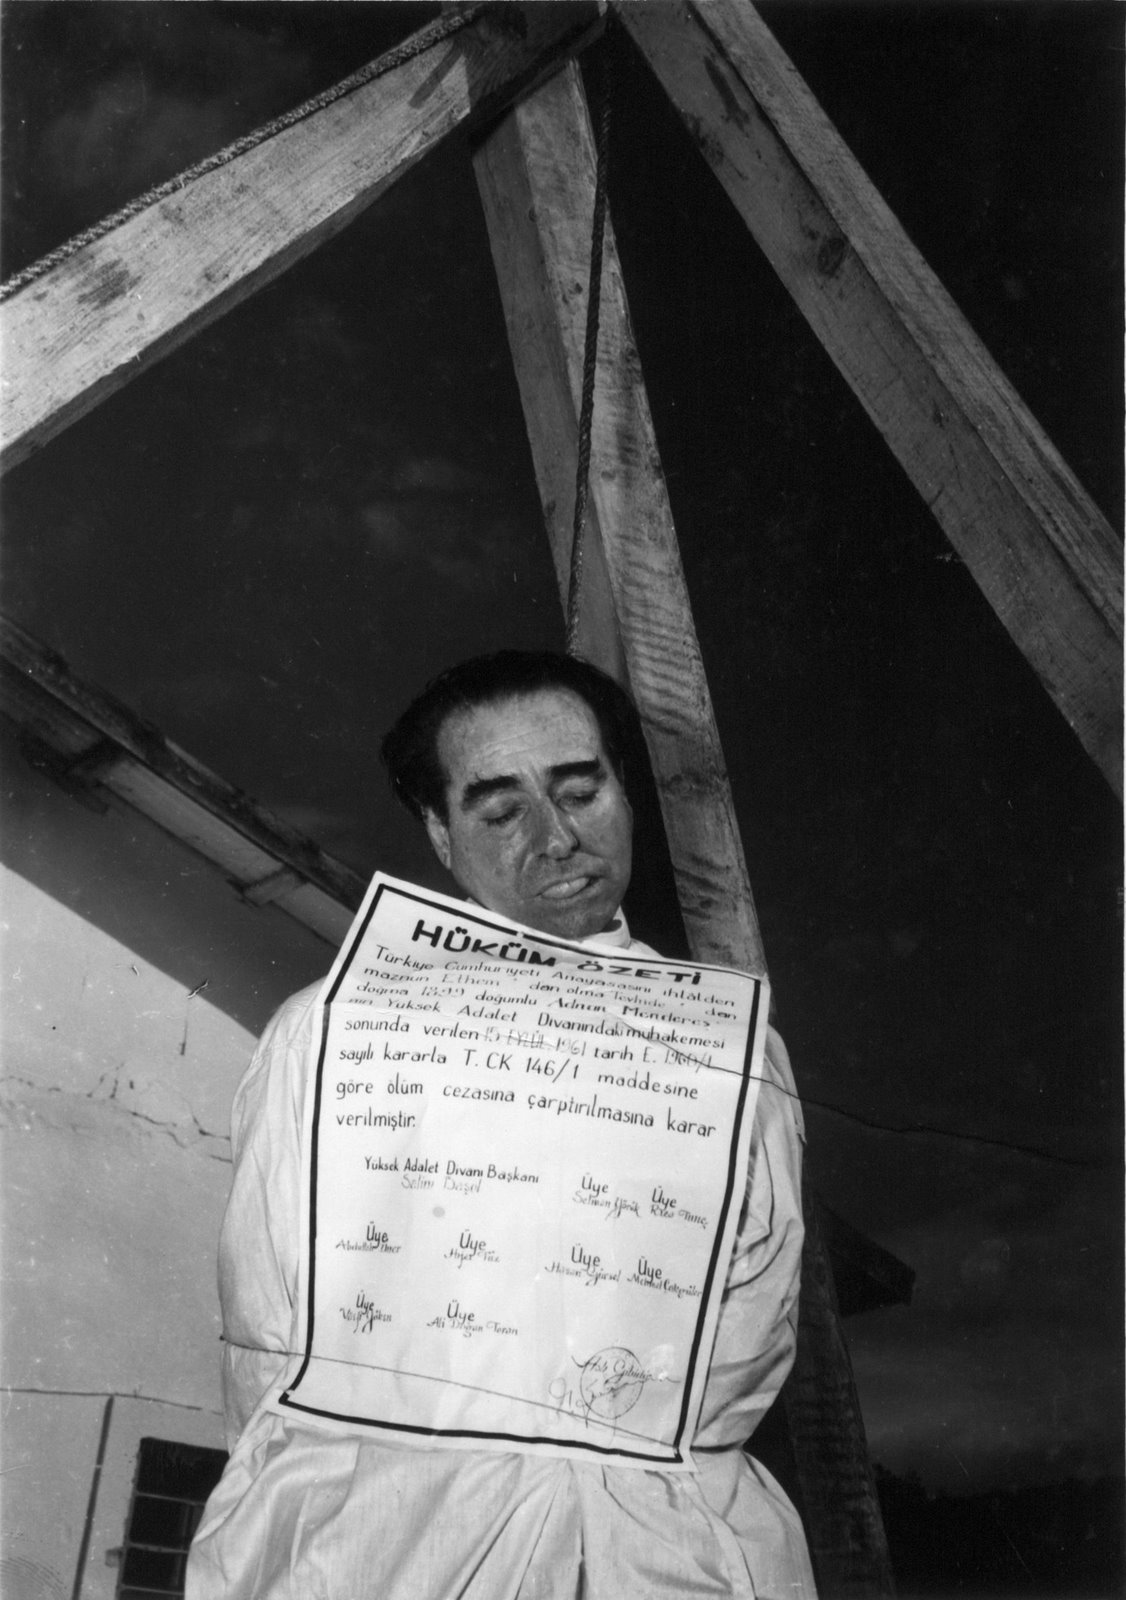 HÜKÜM ÖZETİ
Türkiye Cumhuriyeti Anayasasını ihlâlden
maznun Ethem'den olma Tevhide'den
doğma 1899 doğumlu Adnan Menderes'
nin Yüksek Adalet Divanındaki muhakemesi
sonunda verilen 15 EYLÜL 1961 tarih E. 1960/1
sayılı kararla T. CK 146/1 maddesine
göre ölüm cezasına çarptırılmasına karar
verilmiştir.
Yüksek Adalet Divanı Başkanı
Salim Başol
Üye Üye
Selman Yörük Rıza Tunç
Üye Üye Üye Üye
Hıfzı Tüz Hasan Gürsel
Üye Üye
Vasfi Göksu Ali Doğan Toran
Aslı Gibidir